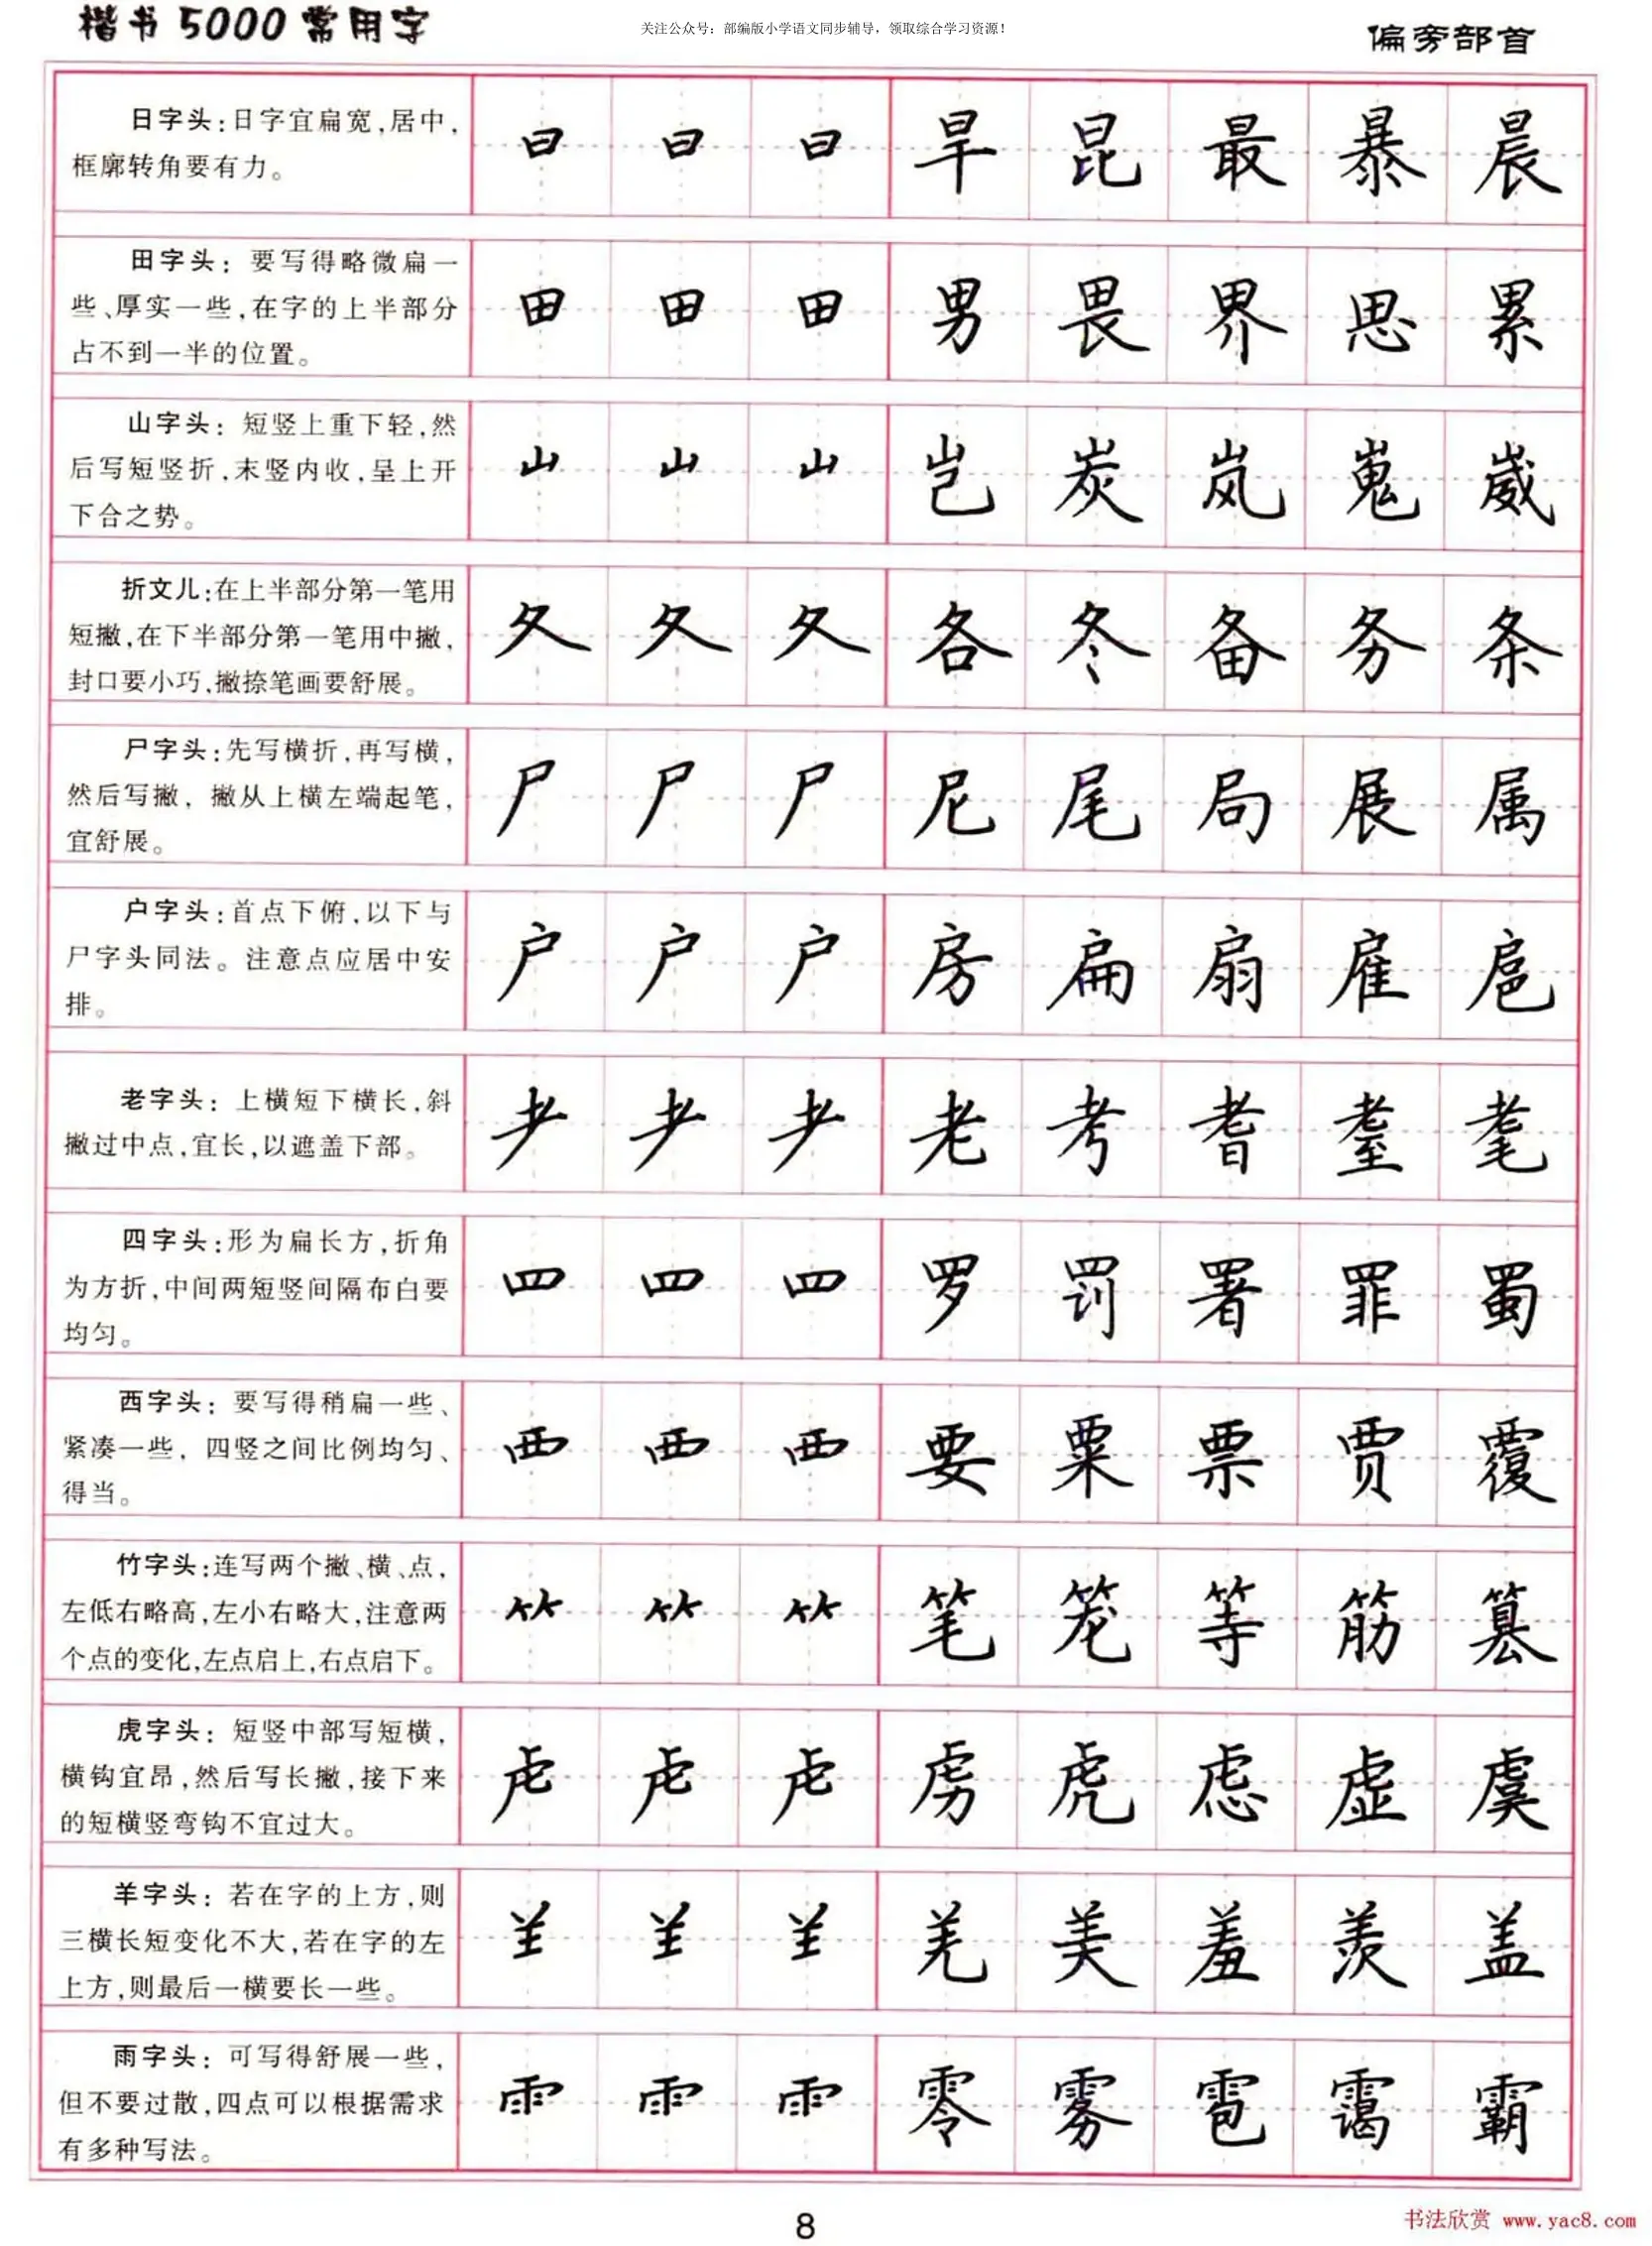 楷书5000常用字
关注公众号：部编版小学语文同步辅导，领取综合学习资源！
偏旁部首
日字头：日字宜扁宽，居中，
框廓转角要有力。
日 日 日 旱 昆 最 暴 晨
田字头：要写得略微扁一
些、厚实一些，在字的上半部分
占不到一半的位置。
田 田 田 男 畏 界 思 累
山字头：短竖上重下轻，然
后写短竖折，末竖内收，呈上开
下合之势。
山 山 山 岂 炭 岚 嵬 崴
折文儿：在上半部分第一笔用
短撇，在下半部分第一笔用中撇，
封口要小巧，撇捺笔画要舒展。
夂 夂 夂 各 冬 备 务 条
尸字头：先写横折，再写横，
然后写撇，撇从上横左端起笔，
宜舒展。
尸 尸 尸 尼 尾 局 展 属
户字头：首点下俯，以下与
尸字头同法。注意点应居中安
排。
户 户 户 房 扁 扇 雇 扈
老字头：上横短下横长，斜
撇过中点，宜长，以遮盖下部。
耂 耂 耂 老 考 耆 耋 耄
四字头：形为扁长方，折角
为方折，中间两短竖间隔布白要
均匀。
罒 罒 罒 罗 罚 署 罪 蜀
西字头：要写得稍扁一些、
紧凑一些，四竖之间比例均匀、
得当。
覀 覀 覀 要 粟 票 贾 覆
竹字头：连写两个撇、横、点，
左低右略高，左小右略大，注意两
个点的变化，左点启上，右点启下。
⺮ ⺮ ⺮ 笔 笼 等 筋 篡
虎字头：短竖中部写短横，
横钩宜昂，然后写长撇，接下来
的短横竖弯钩不宜过大。
虍 虍 虍 虏 虎 虑 虚 虞
羊字头：若在字的上方，则
三横长短变化不大，若在字的左
上方，则最后一横要长一些。
𦍌 𦍌 𦍌 羌 美 羞 羡 盖
雨字头：可写得舒展一些，
但不要过散，四点可以根据需求
有多种写法。
⻗ ⻗ ⻗ 零 雾 雹 霭 霸
8
书法欣赏 www.yac8.com